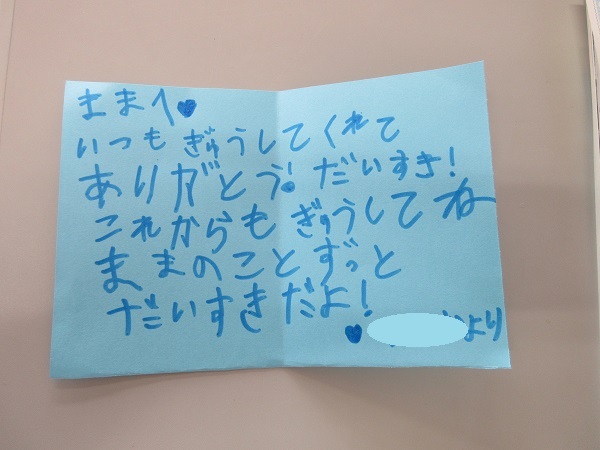 ままへ♥
いつもぎゅうしてくれて
ありがとう! だいすき!
これからもぎゅうしてね
ままのことずっと
だいすきだよ!
♥ より